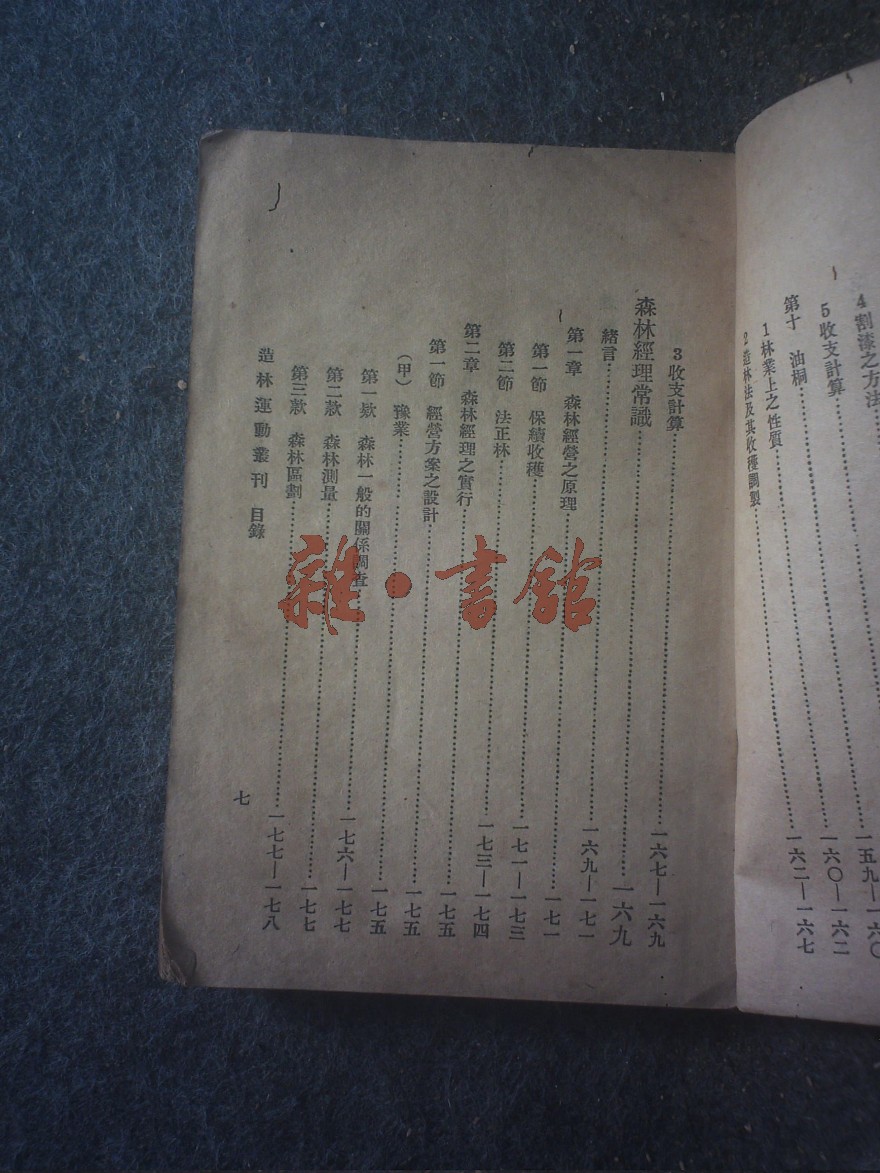 4 割漆之方法……一五九—一六〇
5 收支計算……一六〇—一六二
第十　油桐……一六二—一六七
1 林業上之性質……
2 造林法及其收穫調製……
3 收支計算……一六七—一六九
森林經理常識……一六九
緒言……一六九—一七一
第一章　森林經營之原理……一七一
第一節　保續收穫……一七一—一七三
第二節　法正林……一七三—一七四
第二章　森林經理之實行……一七五
第一節　經營方案之設計……一七五
（甲）豫業……一七五
第一款　森林一般的關係調查……一七六—一七七
第二款　森林測量……一七七
第三款　森林區劃……一七七—一七八
造林運動叢刊　目錄
七
雜·書館